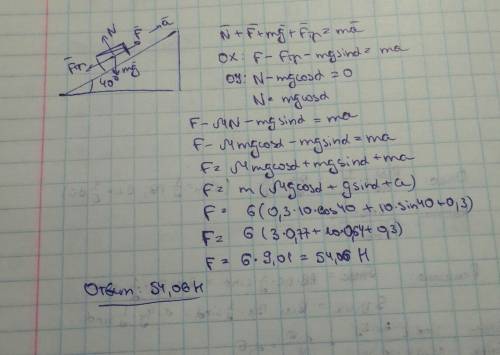 N̄ F̄ ā
F̄тр mḡ
40°
N̄ + F̄ + mḡ + F̄тр = mā
OX: F - Fтр - mgsinα = ma
OY: N - mgcosα = 0
N = mgcosα
F - μN - mgsinα = ma
F - μmgcosα - mgsinα = ma
F = μmgcosα + mgsinα + ma
F = m(μgcosα + gsinα + a)
F = 6(0,3·10·cos40 + 10·sin40 + 0,3)
F = 6(3·0,77 + 10·0,64 + 0,3)
F = 6·9,01 = 54,06 Н
Ответ: 54,06 Н